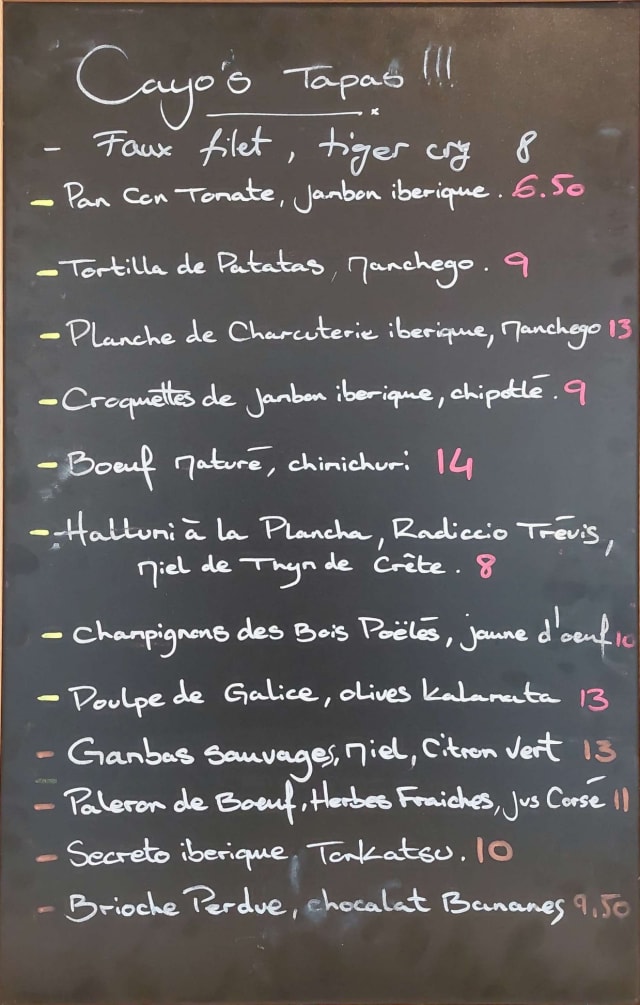 Cayo's Tapas !!!
- Faux filet, tiger cry 8
- Pan Con Tomate, jambon iberique. 6.50
- Tortilla de Patatas, Manchego. 9
- Planche de Charcuterie iberique, Manchego 13
- Croquettes de jambon iberique, chipotlé. 9
- Boeuf maturé, chimichuri 14
- Halluni à la Plancha, Radiccio Trévis,
Miel de Thyn de Crête. 8
- Champignons des Bois Poëlés, jaune d'oeuf 10
- Poulpe de Galice, olives Kalamata 13
- Ganbas sauvages, Miel, Citron Vert 13
- Paleron de Boeuf, Herbes Fraiches, jus Corsé 11
- Secreto iberique, Tonkatsu. 10
- Brioche Perdue, chocolat Bananes 9,50